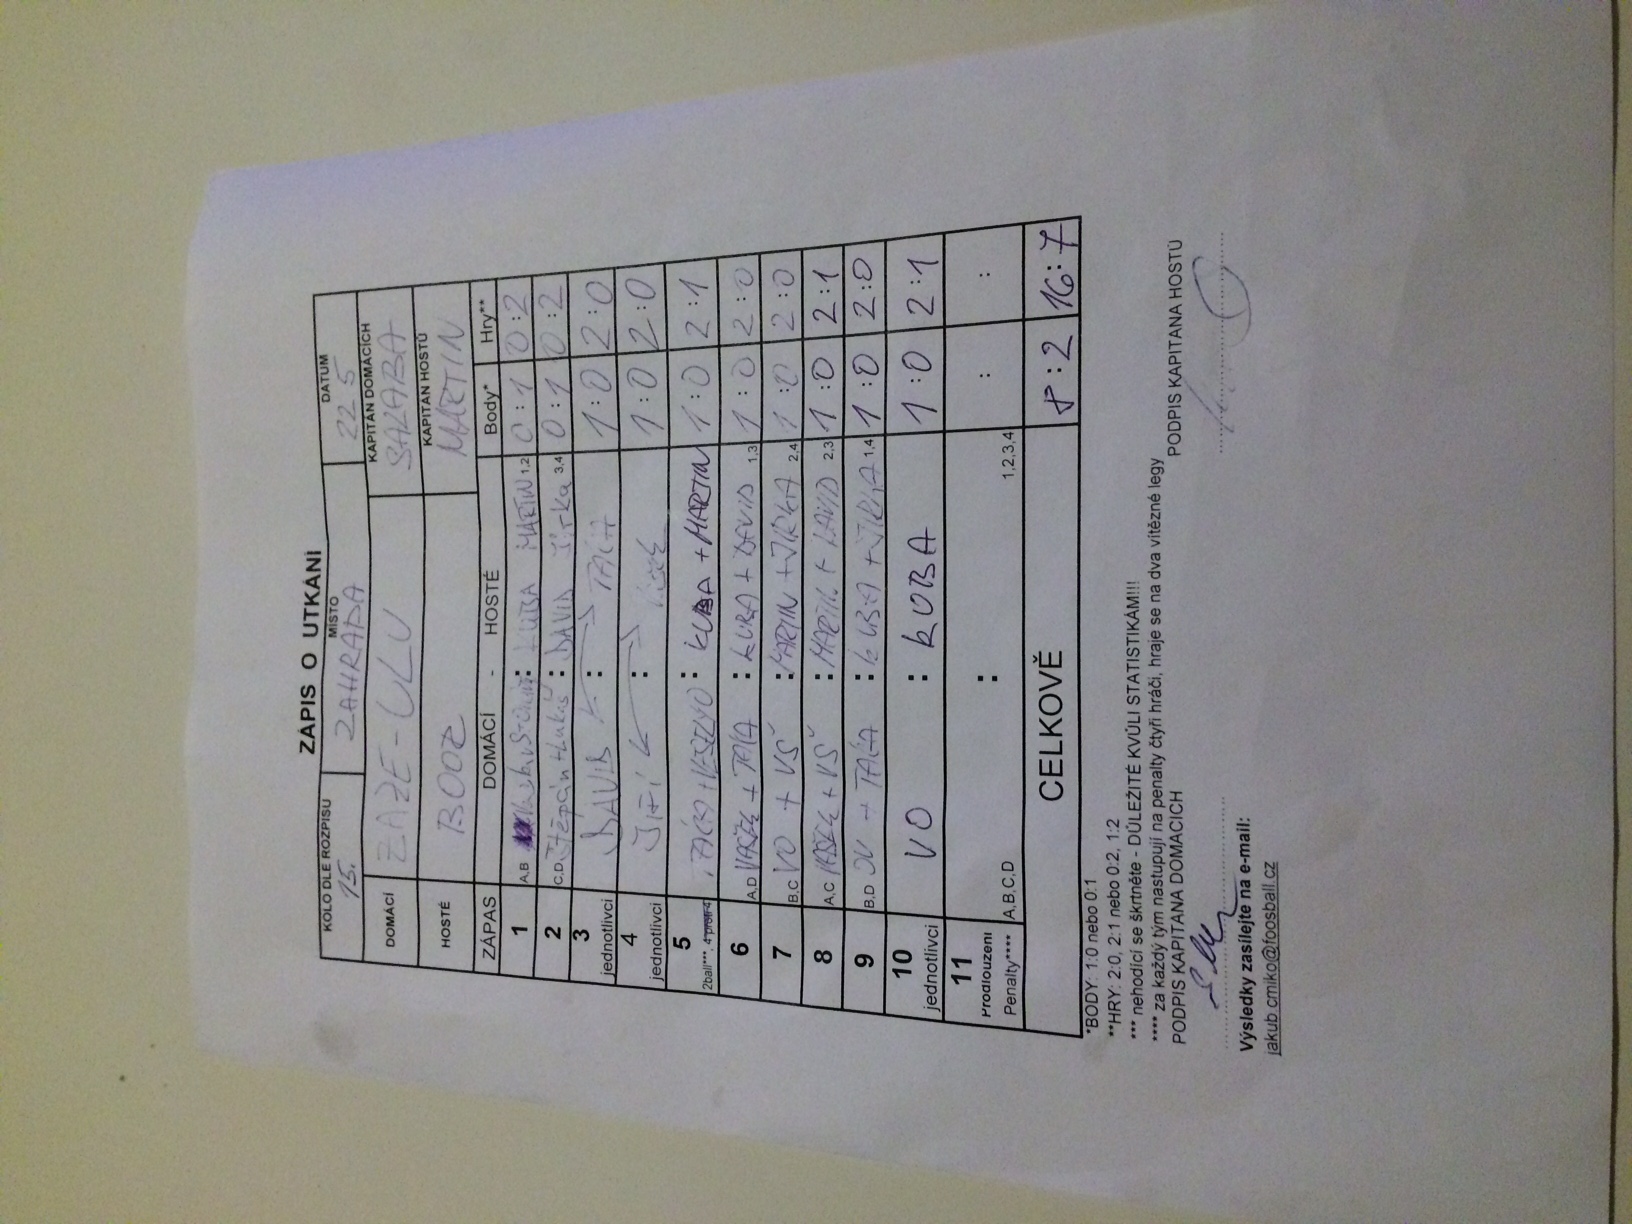 ZÁPIS O UTKÁNÍ
KOLO DLE ROZPISU MÍSTO DATUM
15. ZAHRADA 22 5
DOMÁCÍ ZAŽE-ULU KAPITÁN DOMÁCÍCH
SALABA
HOSTÉ BOOZ KAPITÁN HOSTŮ
MARTIN
ZÁPAS DOMÁCÍ - HOSTÉ Body* Hry**
1 A,B : KUBA MARTIN 1,2 0:1 0:2
2 C,D Štěpán : DAVID Jirka 3,4 0:1 0:2
3 jednotlivci DAVID : TÁCA 1:0 2:0
4 jednotlivci JIŘÍ : 1:0 2:0
5 2ball***, 4 proti 4 : KUBA + MARTIN 1:0 2:1
6 A,D VAŠEK + TÁCA : KUBA + DAVID 1,3 1:0 2:0
7 B,C VO + VŠ : MARTIN + JIRKA 2,4 1:0 2:0
8 A,C VAŠEK + VŠ : MARTIN + DAVID 2,3 1:0 2:1
9 B,D VO + TÁCA : KUBA + JIRKA 1,4 1:0 2:0
10 jednotlivci VO : KUBA 1:0 2:1
11 Prodloužení Penalty**** A,B,C,D : 1,2,3,4 : :
CELKOVĚ 8:2 16:7
*BODY: 1:0 nebo 0:1
**HRY: 2:0, 2:1 nebo 0:2, 1:2
*** nehodící se škrtněte - DŮLEŽITÉ KVŮLI STATISTIKÁM!!!
**** za každý tým nastupují na penalty čtyři hráči, hraje se na dva vítězné legy
PODPIS KAPITÁNA DOMÁCÍCH PODPIS KAPITÁNA HOSTŮ
Výsledky zasílejte na e-mail:
jakub.cmiko@foosball.cz